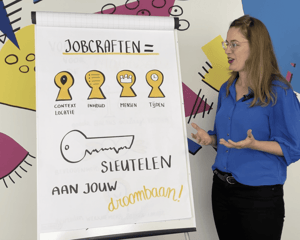 JOBCRAFTEN =
CONTEXT LOCATIE
INHOUD
MENSEN
TIJDEN
SLEUTELEN
AAN JOUW
droombaan!